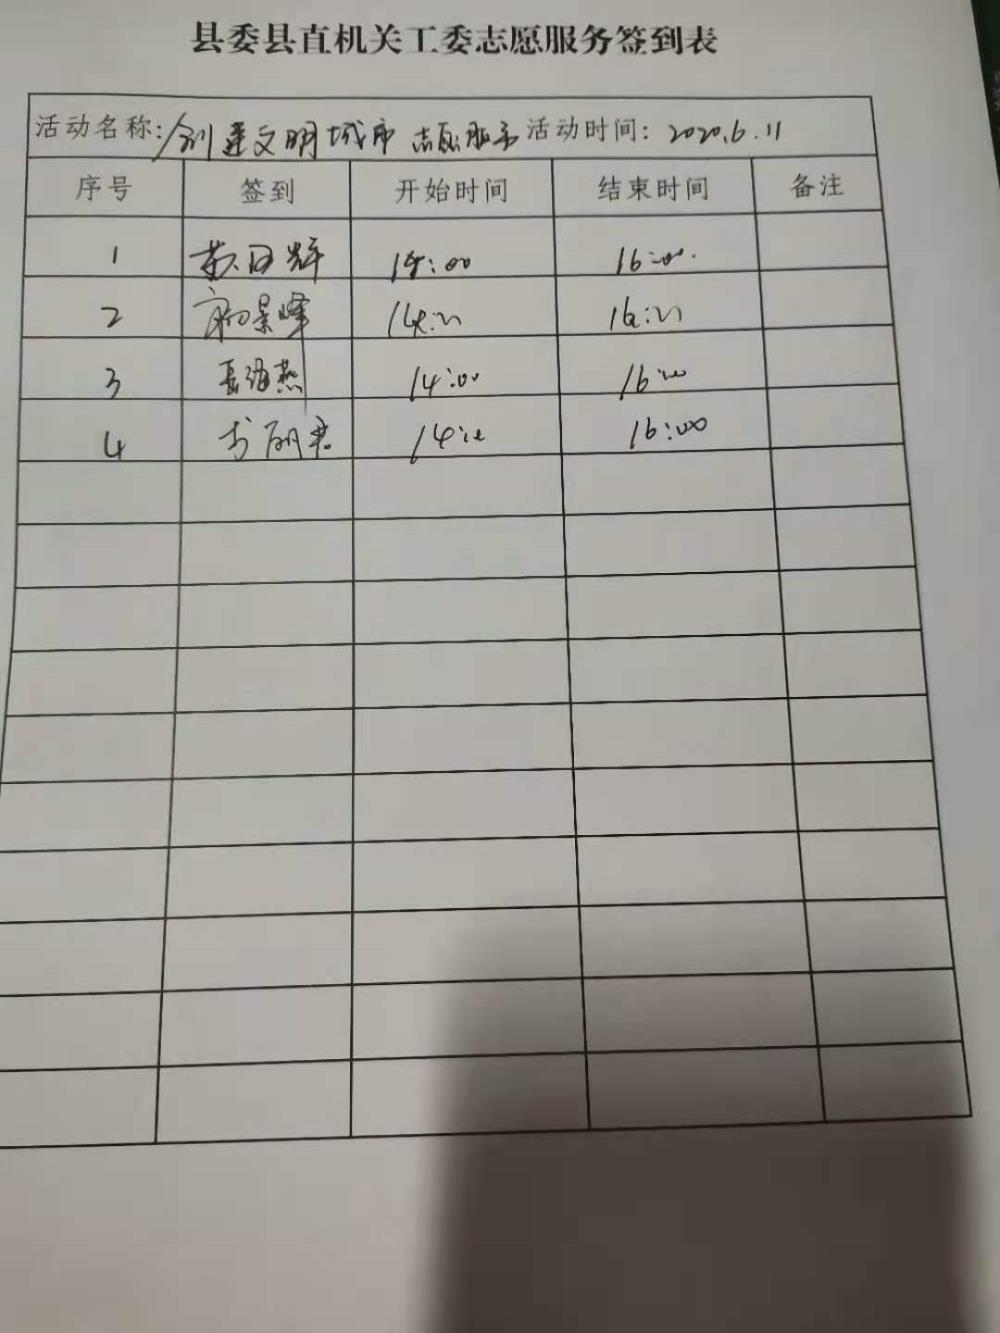 县委县直机关工委志愿服务签到表
活动名称:创建文明城市 志愿服务 活动时间: 2020.6.11
序号 签到 开始时间 结束时间 备注
1 14:00 16:00
2 14:00 16:00
3 14:00 16:00
4 14:00 16:00